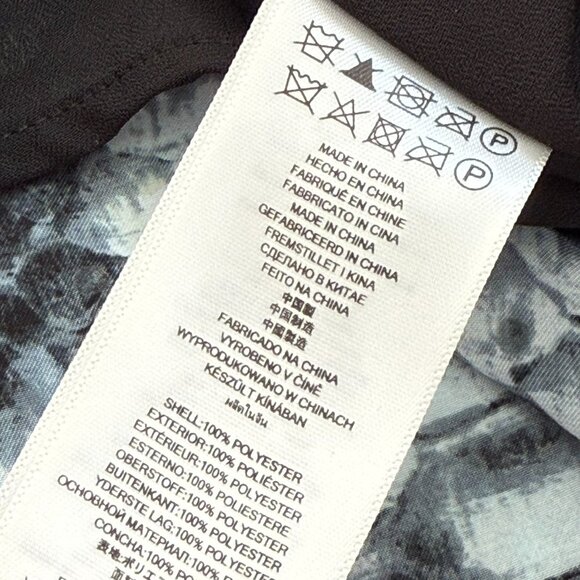 P
P
MADE IN CHINA
HECHO EN CHINA
FABRIQUÉ EN CHINE
FABBRICATO IN CINA
MADE IN CHINA
GEFABRICEERD IN CHINA
FREMSTILLET I KINA
СДЕЛАНО В КИТАЕ
FEITO NA CHINA
中国製
中国制造
中國製造
FABRICADO NA CHINA
VYROBENO V ČÍNĚ
WYPRODUKOWANO W CHINACH
KÉSZÜLT KÍNÁBAN
ผลิตในจีน
SHELL:100% POLYESTER
EXTERIOR:100% POLIÉSTER
EXTÉRIEUR:100% POLYESTER
ESTERNO:100% POLIESTERE
OBERSTOFF:100% POLYESTER
BUITENKANT:100% POLYESTER
YDERSTE LAG:100% POLYESTER
ОСНОВНОЙ МАТЕРИАЛ:100%
CONCHA:100%
表地:ポリエ